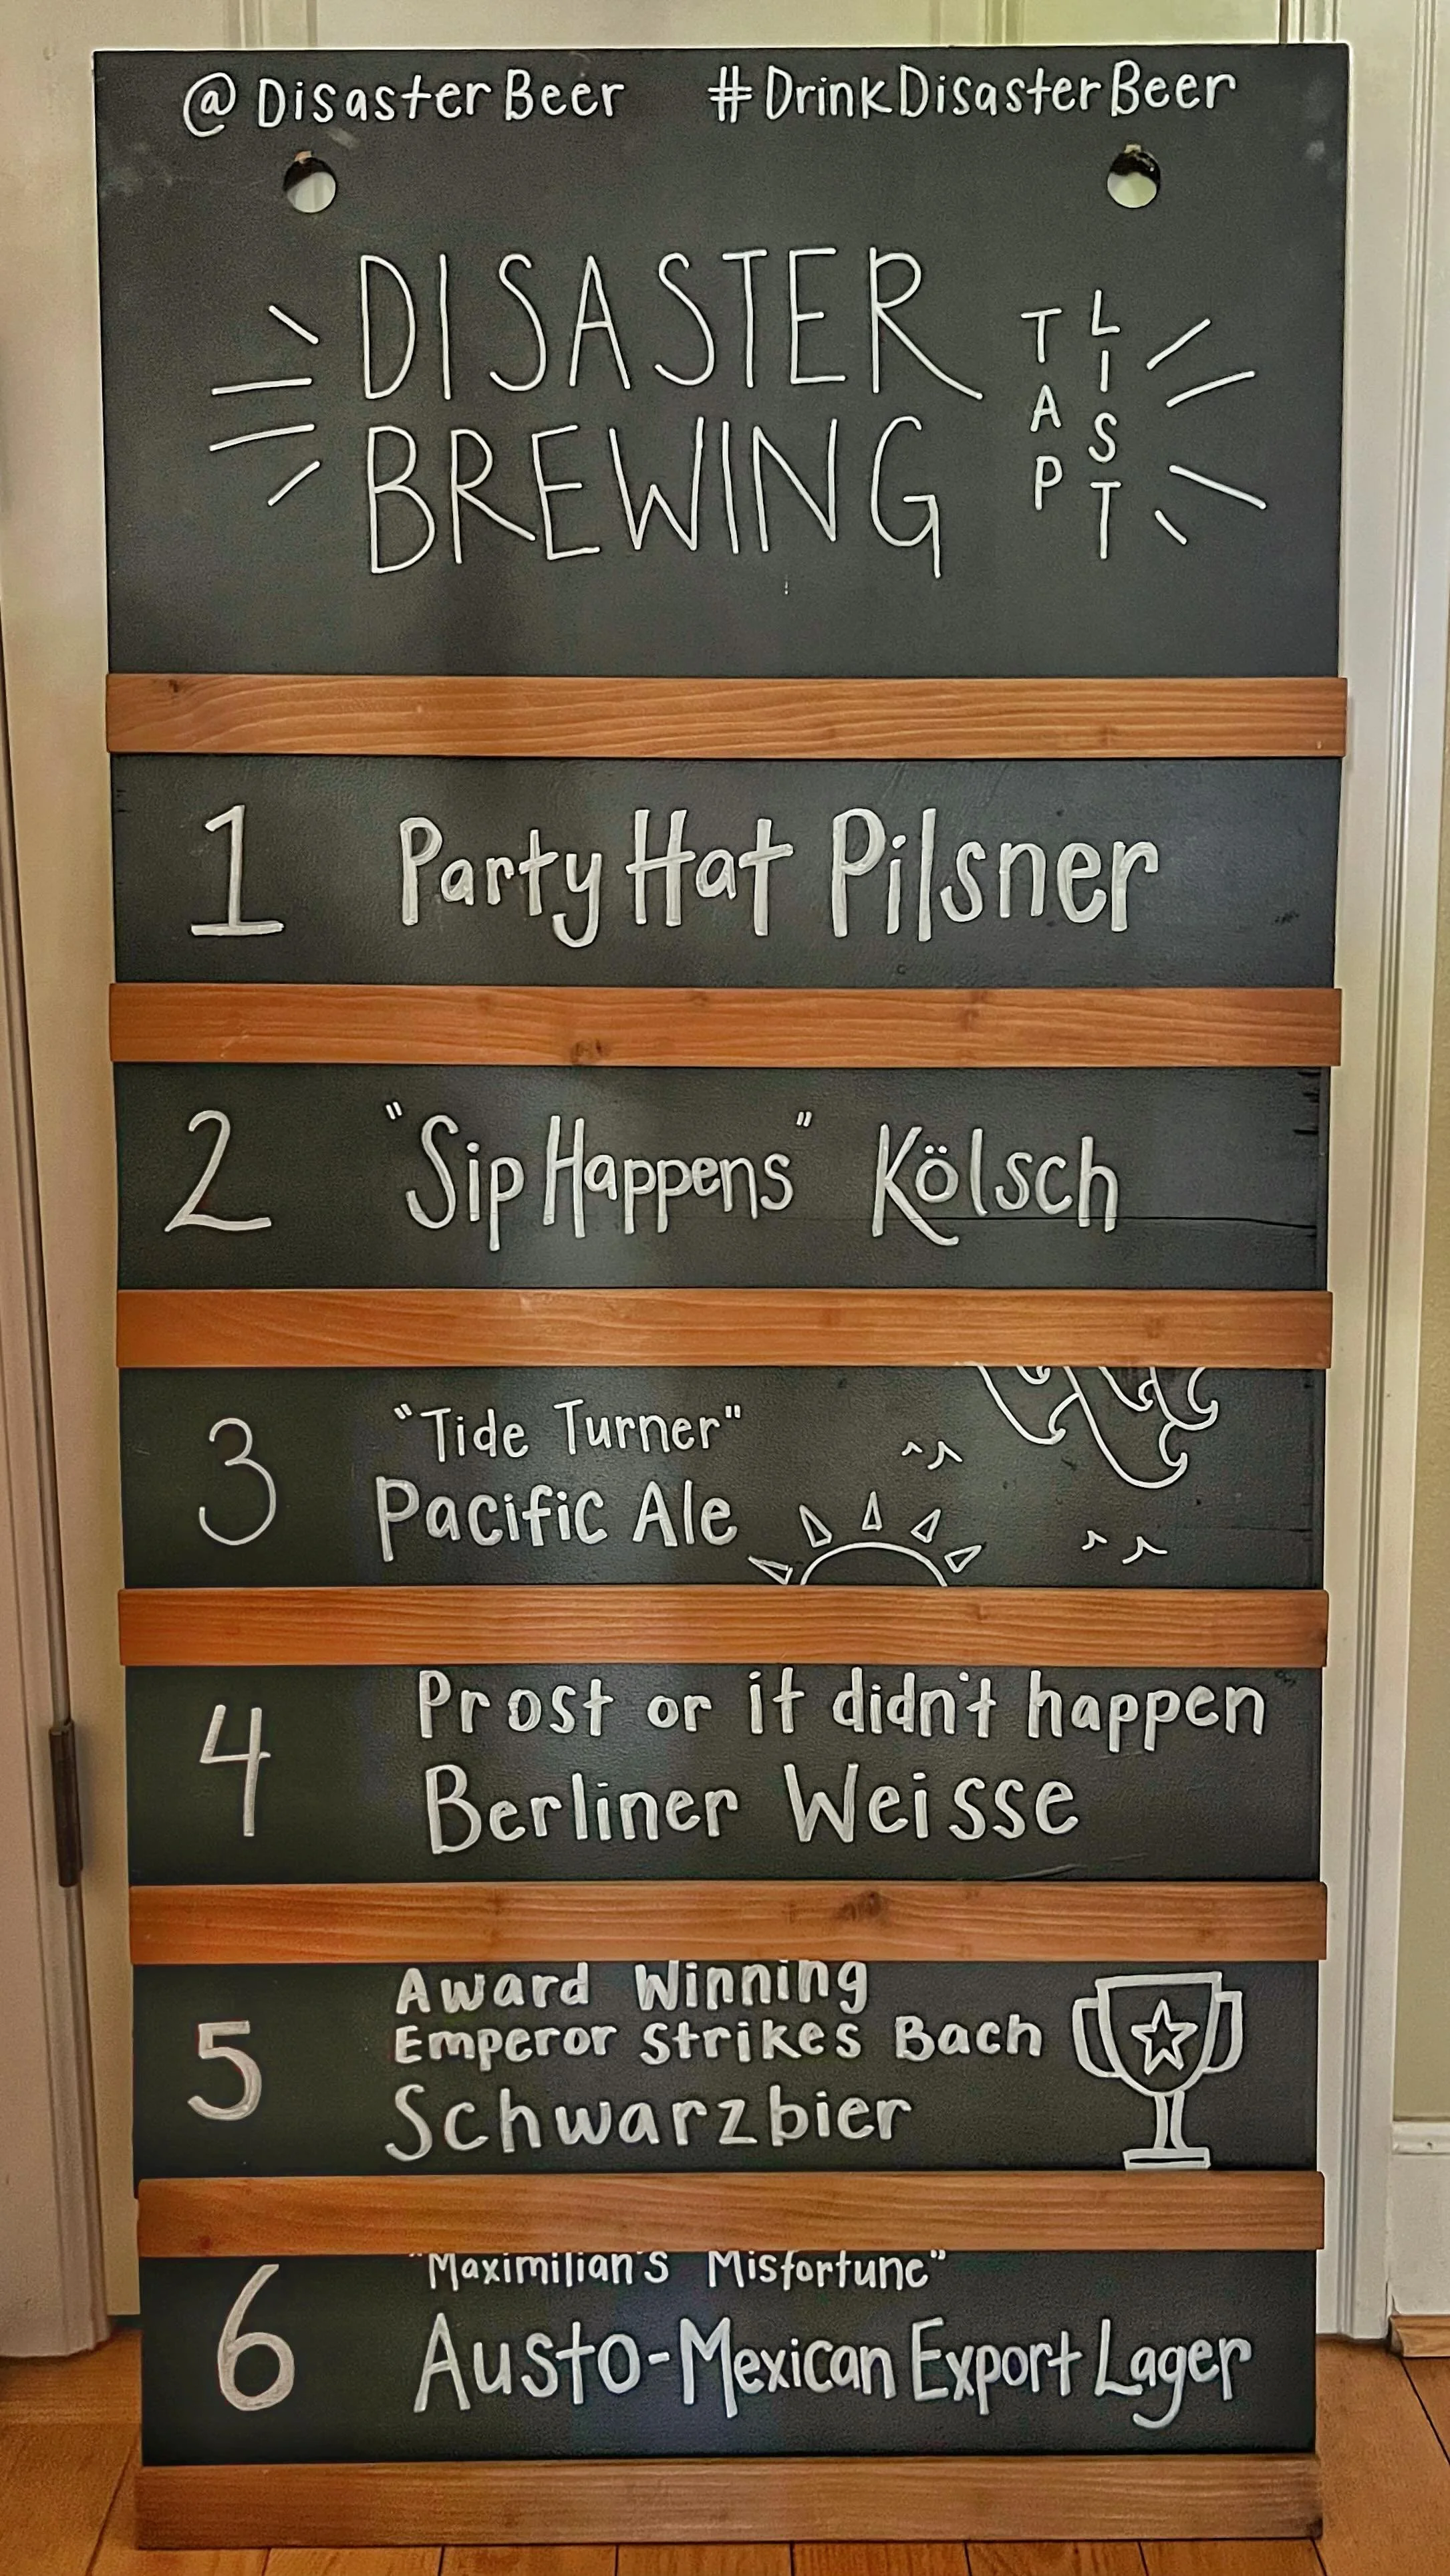 @DisasterBeer #DrinkDisasterBeer
DISASTER
BREWING
TAP
LIST
1 Party Hat Pilsner
2 "Sip Happens" Kölsch
3 "Tide Turner"
Pacific Ale
4 Prost or it didn't happen
Berliner Weisse
5 Award Winning
Emperor Strikes Bach
Schwarzbier
6 "Maximilian's Misfortune"
Austo-Mexican Export Lager